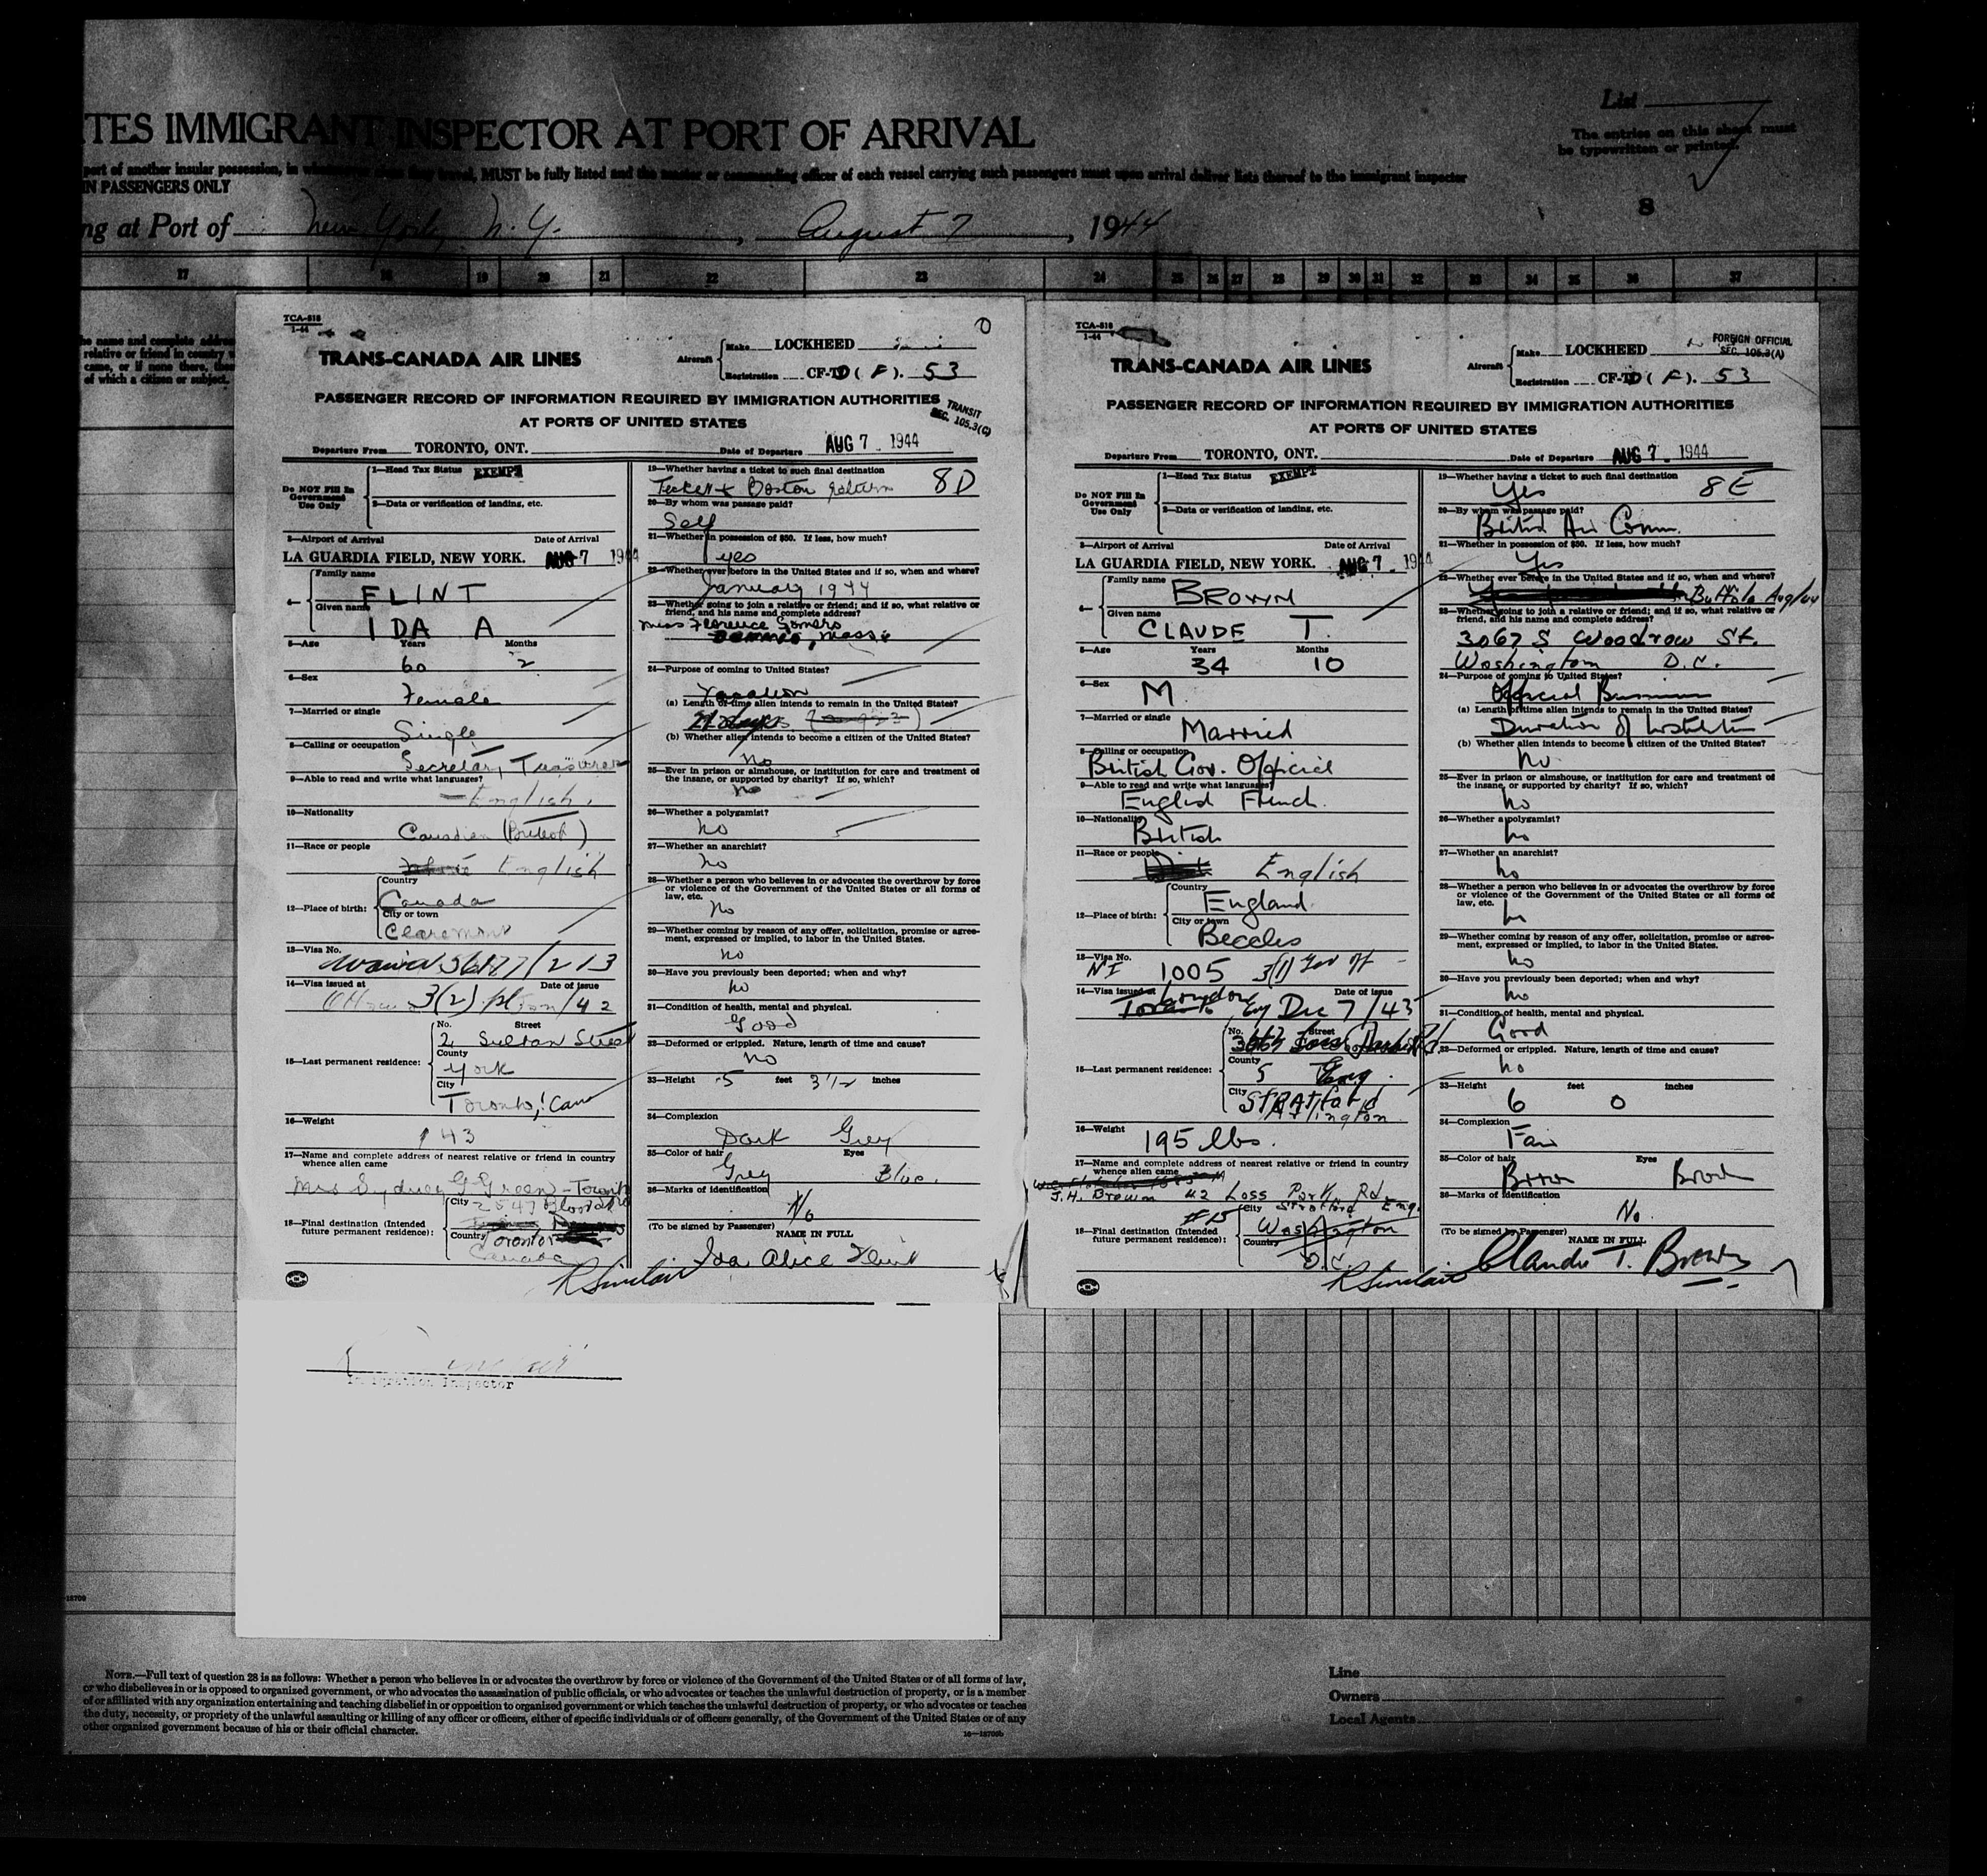 TES IMMIGRANT INSPECTOR AT PORT OF ARRIVAL
List
The entries on this sheet must
be typewritten or printed.
port of another insular possession, in whatsoever class they travel, MUST be fully listed and the master or commanding officer of each vessel carrying such passengers must upon arrival deliver lists thereof to the immigrant inspector
IN PASSENGERS ONLY
8
ng at Port of New York, N. Y. , August 7 , 1944
17 18 19 20 21 22 23 24 25 26 27 28 29 30 31 32 33 34 35 36 37
he name and complete address
relative or friend in country w
came, or if none there, then
of which a citizen or subject.
TCA-518
1-44
TRANS-CANADA AIR LINES
Aircraft
Make LOCKHEED
Registration CF-TD (F). 53
PASSENGER RECORD OF INFORMATION REQUIRED BY IMMIGRATION AUTHORITIES
AT PORTS OF UNITED STATES
TRANSIT
SEC. 105.3(C)
Departure From TORONTO, ONT. Date of Departure AUG 7 - 1944
Do NOT Fill In
Government
Use Only
1—Head Tax Status EXEMPT
2—Data or verification of landing, etc.
3—Airport of Arrival Date of Arrival
LA GUARDIA FIELD, NEW YORK. AUG 7 1944
4—
Family name
FLINT
Given name
IDA A
5—Age Years Months
60 2
6—Sex
Female
7—Married or single
Single
8—Calling or occupation
Secretary Treasurer
9—Able to read and write what languages?
English
10—Nationality
Canadian (British)
11—Race or people
English
12—Place of birth:
Country
Canada
City or town
Claremont
13—Visa No.
14—Visa issued at Date of issue
3(2) /42
15—Last permanent residence:
No. Street
2 Sultan Street
County
York
City
Toronto, Can
16—Weight
143
17—Name and complete address of nearest relative or friend in country
whence alien came
Mrs Sydney G Green - Toronto
18—Final destination (Intended
future permanent residence):
City 2547 Bloor
Country Toronto
Canada
R Sinclair
19—Whether having a ticket to such final destination
Ticket Boston return 8D
20—By whom was passage paid?
Self
21—Whether in possession of $50. If less, how much?
yes
22—Whether ever before in the United States and if so, when and where?
January 1944
23—Whether going to join a relative or friend; and if so, what relative or
friend, and his name and complete address?
Miss Florence Somers
Mass.
24—Purpose of coming to United States?
Vacation
(a) Length of time alien intends to remain in the United States?
days
(b) Whether alien intends to become a citizen of the United States?
No
25—Ever in prison or almshouse, or institution for care and treatment of
the insane, or supported by charity? If so, which?
No
26—Whether a polygamist?
No
27—Whether an anarchist?
No
28—Whether a person who believes in or advocates the overthrow by force
or violence of the Government of the United States or all forms of
law, etc.
No
29—Whether coming by reason of any offer, solicitation, promise or agree-
ment, expressed or implied, to labor in the United States.
No
30—Have you previously been deported; when and why?
No
31—Condition of health, mental and physical.
Good
32—Deformed or crippled. Nature, length of time and cause?
No
33—Height 5 feet 3 1/2 inches
34—Complexion
Dark Grey
35—Color of hair Eyes
Grey Blue.
36—Marks of identification
No
(To be signed by Passenger) NAME IN FULL
Ida Alice Flint
Immigration Inspector
TCA-518
1-44
TRANS-CANADA AIR LINES
Aircraft
Make LOCKHEED
Registration CF-TD (F). 53
FOREIGN OFFICIAL
SEC. 105.3(A)
PASSENGER RECORD OF INFORMATION REQUIRED BY IMMIGRATION AUTHORITIES
AT PORTS OF UNITED STATES
Departure From TORONTO, ONT. Date of Departure AUG 7 - 1944
Do NOT Fill In
Government
Use Only
1—Head Tax Status EXEMPT
2—Data or verification of landing, etc.
3—Airport of Arrival Date of Arrival
LA GUARDIA FIELD, NEW YORK. AUG 7 - 1944
4—
Family name
BROWN
Given name
CLAUDE T.
5—Age Years Months
34 10
6—Sex
M
7—Married or single
Married
8—Calling or occupation
British Gov. Official
9—Able to read and write what languages?
English French
10—Nationality
British
11—Race or people
English
12—Place of birth:
Country
England
City or town
Beccles
13—Visa No.
NI 1005 3(1) Gov Off
14—Visa issued at Date of issue
Toronto London Eng Dec 7/43
15—Last permanent residence:
No. Street
County
Eng.
City
Stratford
Arlington
16—Weight
195 lbs.
17—Name and complete address of nearest relative or friend in country
whence alien came
J.H. Brown 42 Loss Park Rd.
Stratford Eng.
18—Final destination (Intended
future permanent residence):
City Washington
Country
D.C.
R Sinclair
19—Whether having a ticket to such final destination
Yes 8E
20—By whom was passage paid?
British Air Comm.
21—Whether in possession of $50. If less, how much?
Yes
22—Whether ever before in the United States and if so, when and where?
Buffalo Aug/44
23—Whether going to join a relative or friend; and if so, what relative or
friend, and his name and complete address?
3067 S Woodrow St.
Washington D.C.
24—Purpose of coming to United States?
Official Business
(a) Length of time alien intends to remain in the United States?
Duration of
(b) Whether alien intends to become a citizen of the United States?
No.
25—Ever in prison or almshouse, or institution for care and treatment of
the insane, or supported by charity? If so, which?
No
26—Whether a polygamist?
No
27—Whether an anarchist?
No
28—Whether a person who believes in or advocates the overthrow by force
or violence of the Government of the United States or all forms of
law, etc.
No
29—Whether coming by reason of any offer, solicitation, promise or agree-
ment, expressed or implied, to labor in the United States.
No
30—Have you previously been deported; when and why?
No
31—Condition of health, mental and physical.
Good
32—Deformed or crippled. Nature, length of time and cause?
No
33—Height feet inches
6 0
34—Complexion
Fair
35—Color of hair Eyes
Brown Brown
36—Marks of identification
No.
(To be signed by Passenger) NAME IN FULL
Claude T. Brown
NOTE.—Full text of question 28 is as follows: Whether a person who believes in or advocates the overthrow by force or violence of the Government of the United States or of all forms of law,
or who disbelieves in or is opposed to organized government, or who advocates the assassination of public officials, or who advocates or teaches the unlawful destruction of property, or is a member
of or affiliated with any organization entertaining and teaching disbelief in or opposition to organized government or which teaches the unlawful destruction of property, or who advocates or teaches
the duty, necessity, or propriety of the unlawful assaulting or killing of any officer or officers, either of specific individuals or of officers generally, of the Government of the United States or of any
other organized government because of his or their official character.
Line
Owners
Local Agents